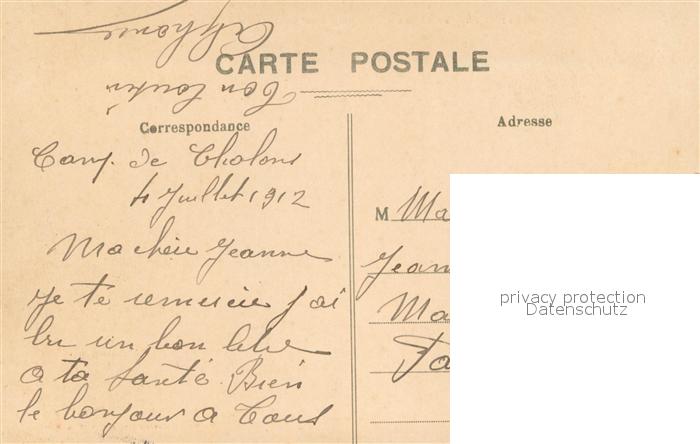 CARTE POSTALE
Correspondance
Adresse
Camp de Chalons
4 Juillet 1912
Ma chère Jeanne
Je te remercie j'ai
bu un bon litre
a ta Santé Bien
le bonjour a tous
ton
Alphonse
M Ma
Jean
Ma
Pa
privacy protection
Datenschutz